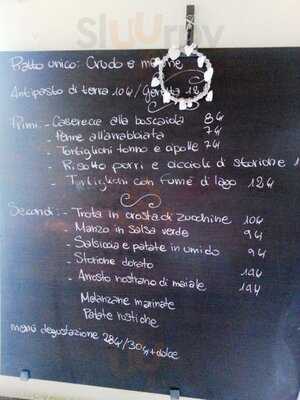 Sluurpy
Piatto unico: Crudo e
Antipasto di terra 10€ /
Primi: - Caserecce alla boscaiola 8€
- Penne all'arrabbiata 7€
- Tortiglioni tonno e cipolle 7€
- Risotto porri e ciccioli di storione 1
- Tortiglioni con fumé di lago 12€
Secondi: - Trota in crosta di zucchine 10€
- Manzo in salsa verde 9€
- Salsiccia e patate in umido 9€
- Storione dorato 14€
- Arrosto nostrano di maiale 14€
Melanzane marinate
Patate rustiche
menù degustazione 28€/30€ + dolce